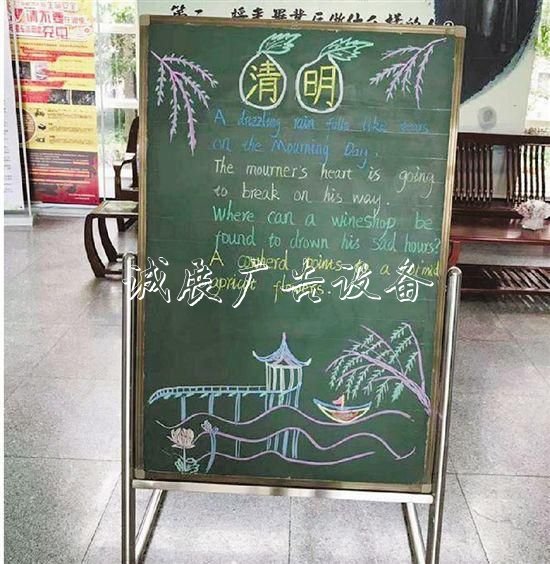 清明
A dazzling rain falls like tears
on the Mourning Day.
The mourner's heart is going
to break on his way.
Where can a wineshop be
found to drown his sad hours?
A cowherd points to a
apricot flowers.
诚展广告设备